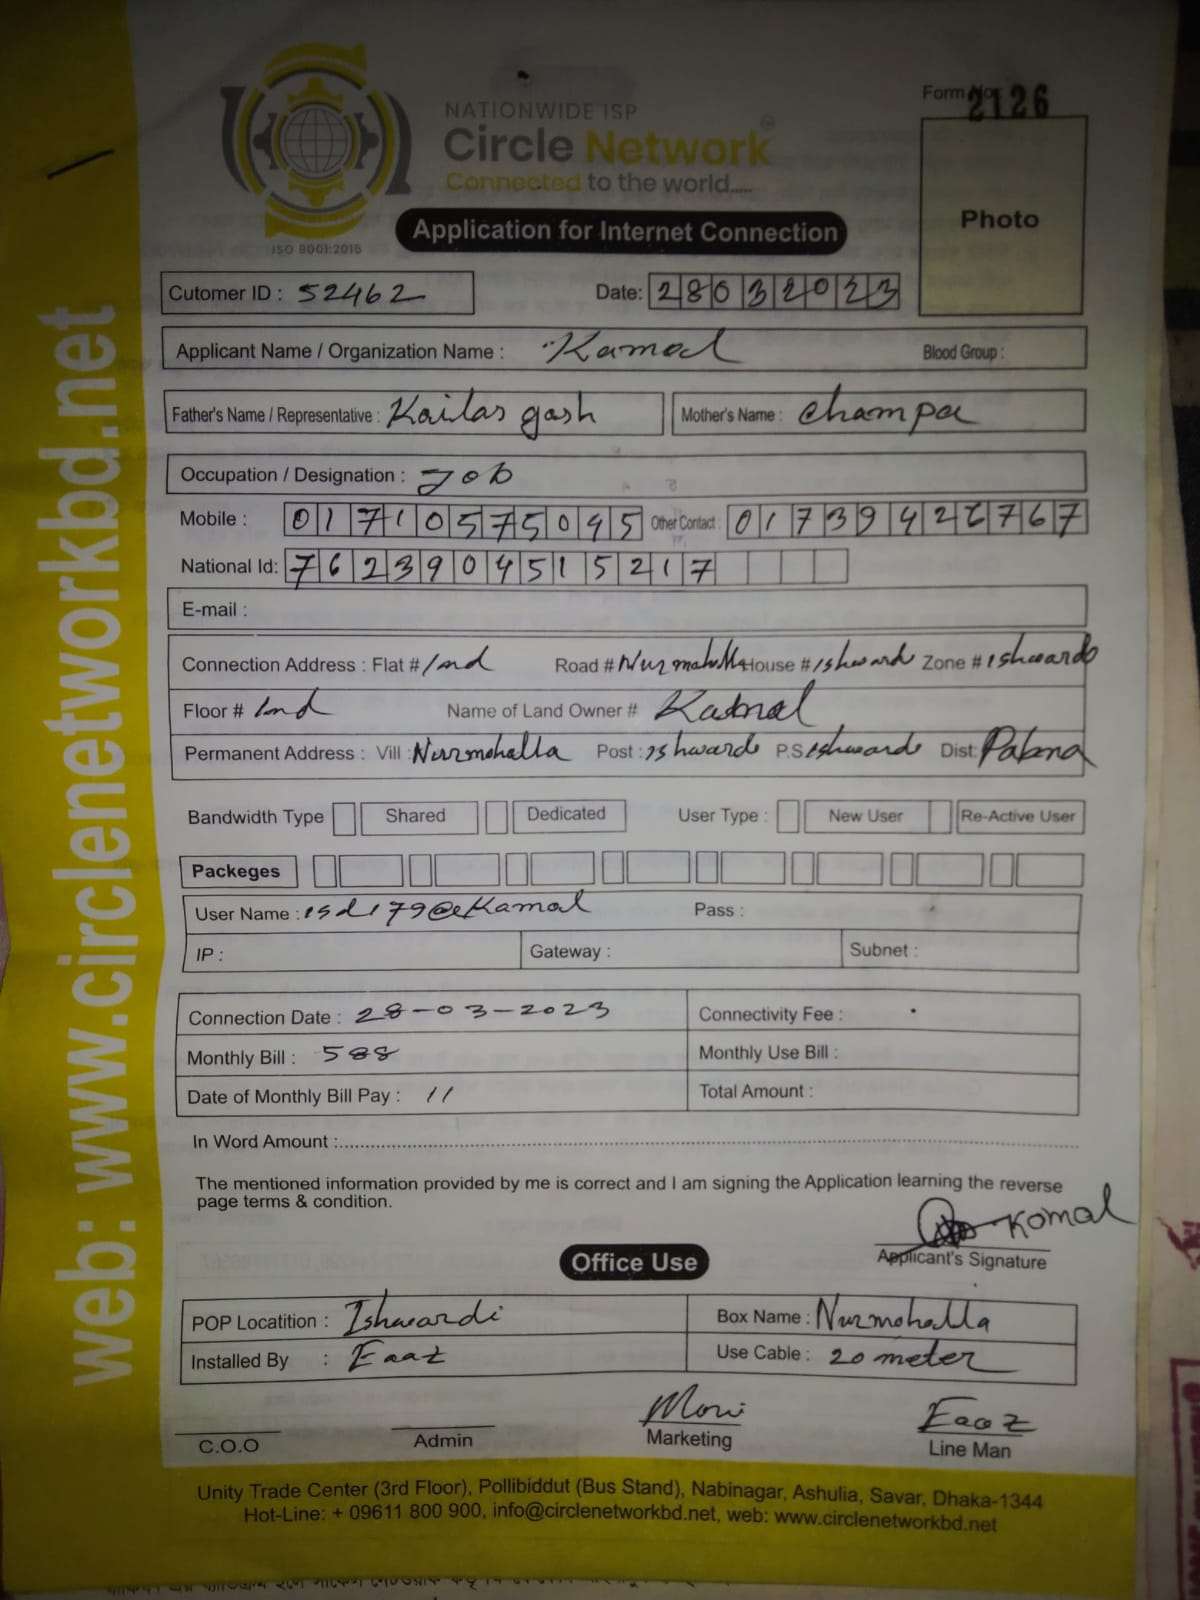 Form No: 2126
NATIONWIDE ISP
Circle Network
Connected to the world.....
ISO 9001:2015
Application for Internet Connection
Photo
Cutomer ID : 52462 Date: 28032023
Applicant Name / Organization Name : Kamal Blood Group :
Father's Name / Representative : Kailas gash Mother's Name : Champa
Occupation / Designation : Job
Mobile : 01710575045 Other Contact : 01739426767
National Id: 7623904515217
E-mail :
Connection Address : Flat # 1nd Road # Nurmahalla House # Ishwardi Zone # Ishwardi
Floor # 1nd Name of Land Owner # Kamal
Permanent Address : Vill : Nurmohalla Post : Ishwardi P.S Ishwardi Dist: Pabna
Bandwidth Type Shared Dedicated User Type : New User Re-Active User
Packeges
User Name : isd179@Kamal Pass :
IP : Gateway : Subnet :
Connection Date : 28-03-2023 Connectivity Fee :
Monthly Bill : 588 Monthly Use Bill :
Date of Monthly Bill Pay : 11 Total Amount :
In Word Amount :
The mentioned information provided by me is correct and I am signing the Application learning the reverse
page terms & condition.
Komal
Applicant's Signature
Office Use
POP Locatition : Ishwardi Box Name : Nurmohalla
Installed By : Eaaz Use Cable : 20 meter
Moni Eaaz
C.O.O Admin Marketing Line Man
Unity Trade Center (3rd Floor), Pollibiddut (Bus Stand), Nabinagar, Ashulia, Savar, Dhaka-1344
Hot-Line: + 09611 800 900, info@circlenetworkbd.net, web: www.circlenetworkbd.net
web: www.circlenetworkbd.net